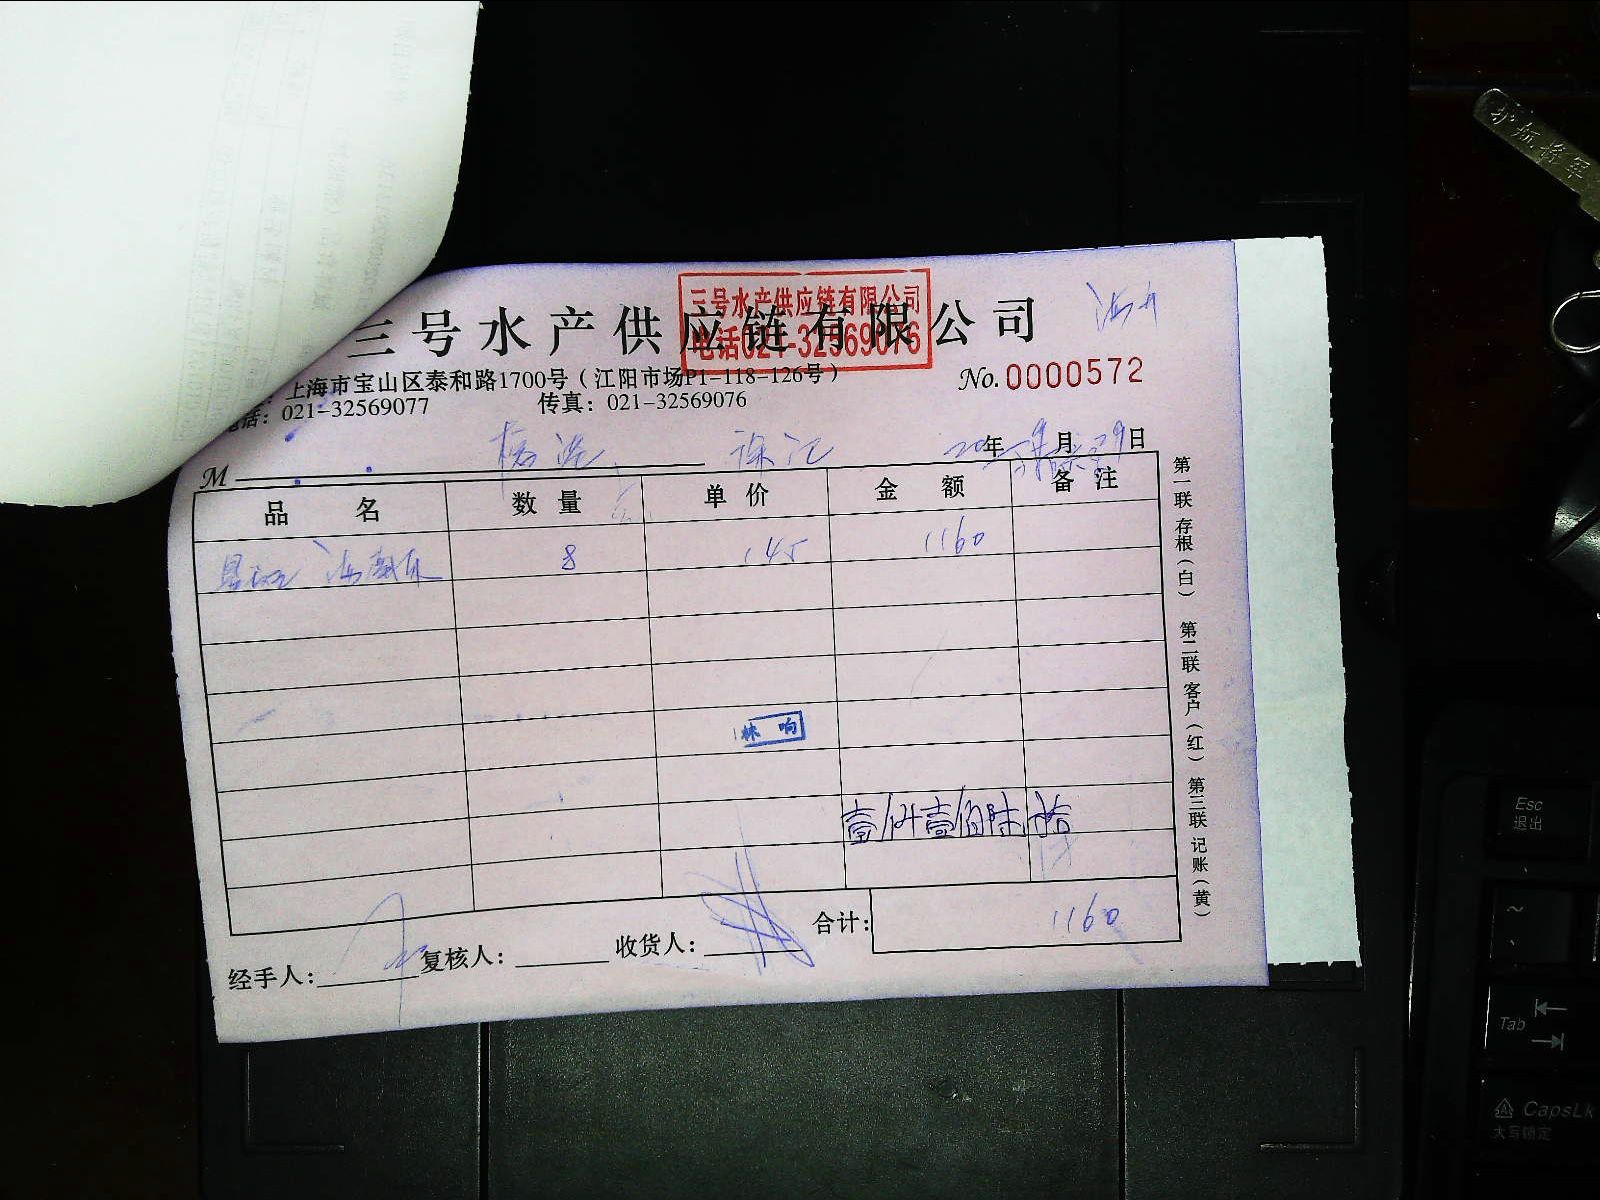 三号水产供应链有限公司
三号水产供应链有限公司
电话021-32569076
上海市宝山区泰和路1700号（江阳市场P1-118-126号）
No.0000572
电话：021-32569077 传真：021-32569076
M 徐汇 年 月 日
品名 数量 单价 金额 备注
8 145 1160
林响
壹仟壹佰陆拾
合计： 1160
经手人： 复核人： 收货人：
第一联 存根（白） 第二联 客户（红） 第三联 记账（黄）
护航将军
Esc
退出
~
Tab
CapsLk
大写锁定